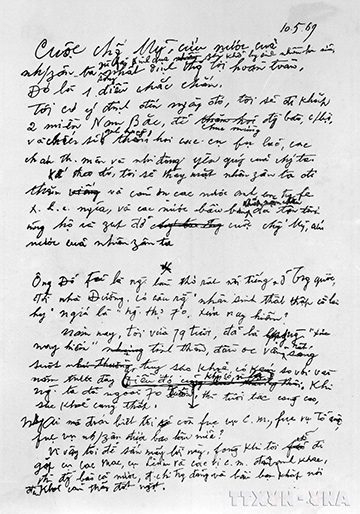 10.5.69
Cuộc chg Mỹ, cứu nước của
nh/zân ta nhất định thg lợi hoàn toàn,
Đó là 1 điều chắc chắn.
Tôi có ý định đến ngày đó, tôi sẽ đi khắp
2 miền Nam Bắc, để chúc mừng đg bào, c/bộ,
và chiến sĩ; thăm hỏi các cụ fụ lão, các
cháu th. niên và nhi đồng yêu quý của chg ta.
Kế theo đó, tôi sẽ thay mặt nhân zân ta đi
thăm và cám ơn các nước anh em tg fe
x. h. c. nghĩa, và các nước bầu bạn đã tận tình
ủng hộ và zúp đỡ cuộc chg Mỹ, cứu
nước của nhân zân ta
Ông Đỗ Fủ là ng làm thơ rất nổi tiếng ở Trg quốc,
đời nhà Đường, có câu rằng "nhân sinh thất thập cổ lai
hy" nghĩa là "ng thọ 70, xưa nay hiếm".
Năm nay, tôi vừa 79 tuổi, đã là "xưa
nay hiếm" tinh thần, đầu óc vẫn sáng
suốt tuy sức khoẻ có kém so với vài
năm trước đây. Khi
ng ta đã ngoài 70 thì tuổi tác càng cao,
sức khoẻ càng thấp.
Nhưng ai mà đoán biết tôi còn fục vụ C.m, fục vụ Tổ quốc,
fục vụ nh/zân được bao lâu nữa?
Vì vậy tôi để sẵn mấy lời này, fòng khi tôi đi
gặp cụ Các Mác, cụ Lênin và các vị c. m. đàn anh khác,
thì đg bào cả nước, đ/chí trg đảng và bầu bạn khắp nơi
đều khỏi cảm thấy đột ngột.
TTXVN-VNA